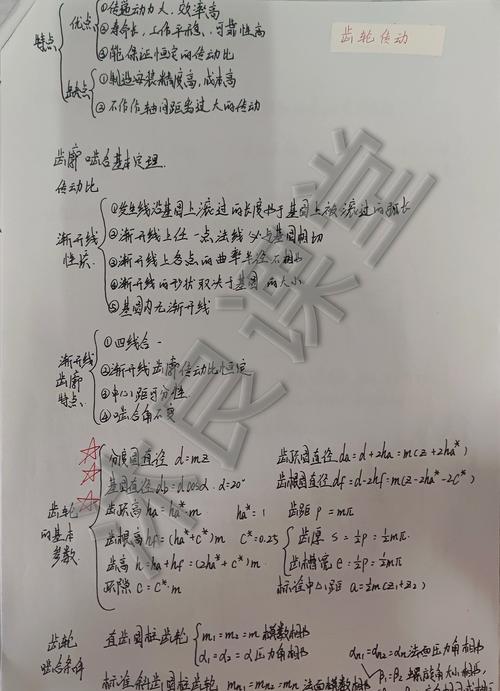 齿轮传动
特点
优点
①传递动力大、效率高
②寿命长,工作平稳,可靠性高
③能保证恒定的传动比
缺点
①制造安装精度高,成本高
②不作轴间距离过大的传动
齿廓啮合基本定理.
传动比
渐开线性质
①发生线沿基圆上滚过的长度等于基圆上被滚过的弧长
②渐开线上任一点法线必与基圆相切
③渐开线上各点的曲率半径不相等
④渐开线的形状取决于基圆的大小
⑤基圆内无渐开线
渐开线齿廓特点
①四线合一
②渐开线齿廓传动比恒定
③中心距可分性.
④啮合角不变
齿轮的基本参数.
分度圆直径 d=mz
齿顶圆直径 da=d+2ha=m(z+2ha*)
基圆直径 db=dcosα. α=20°
齿根圆直径 df=d-2hf=m(z-2ha*-2c*)
齿顶高 ha=ha*·m
ha*=1
齿距 p=mπ
齿根高 hf=(ha*+c*)m
c*=0.25
齿厚 s=½p=½mπ.
齿高 h=ha+hf=(2ha*+c*)m
齿槽宽 e=½p=½mπ
顶隙 c=c*·m
标准中心距 a=½m(z1+z2)
齿轮啮合条件
直齿圆柱齿轮
m1=m2=m 模数相等
α1=α2=α 压力角相等
标准斜齿圆柱齿轮
mn1=mn2=mn 法面模数相等
αn1=αn2=αn 法面压力角相等
β1=β2 螺旋角大小相等,
课堂